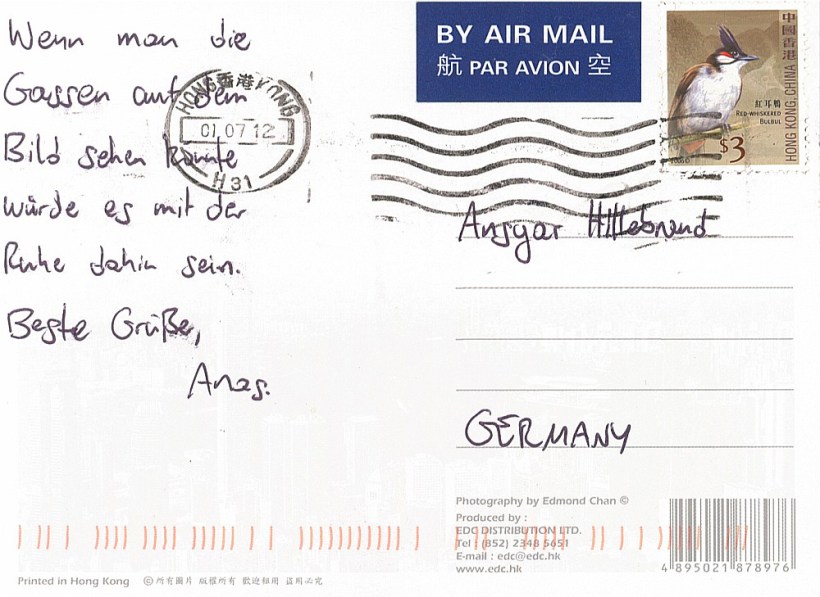 Wenn man die
Gassen auf dem
Bild sehen könnte
würde es mit der
Ruhe dahin sein.
Beste Grüße,
Anas.
HONG KONG 香港
01.07.12
H31
BY AIR MAIL
航 PAR AVION 空
中國香港
HONG KONG, CHINA
紅耳鵯
RED-WHISKERED
BULBUL
$3
Ansgar Hillebrand
GERMANY
Photography by Edmond Chan ©
Produced by :
EDC DISTRIBUTION LTD.
Tel : (852) 2348 5651
E-mail : edc@edc.hk
www.edc.hk
4 895021 878976
Printed in Hong Kong © 所有圖片 版權所有 歡迎租用 盜用必究